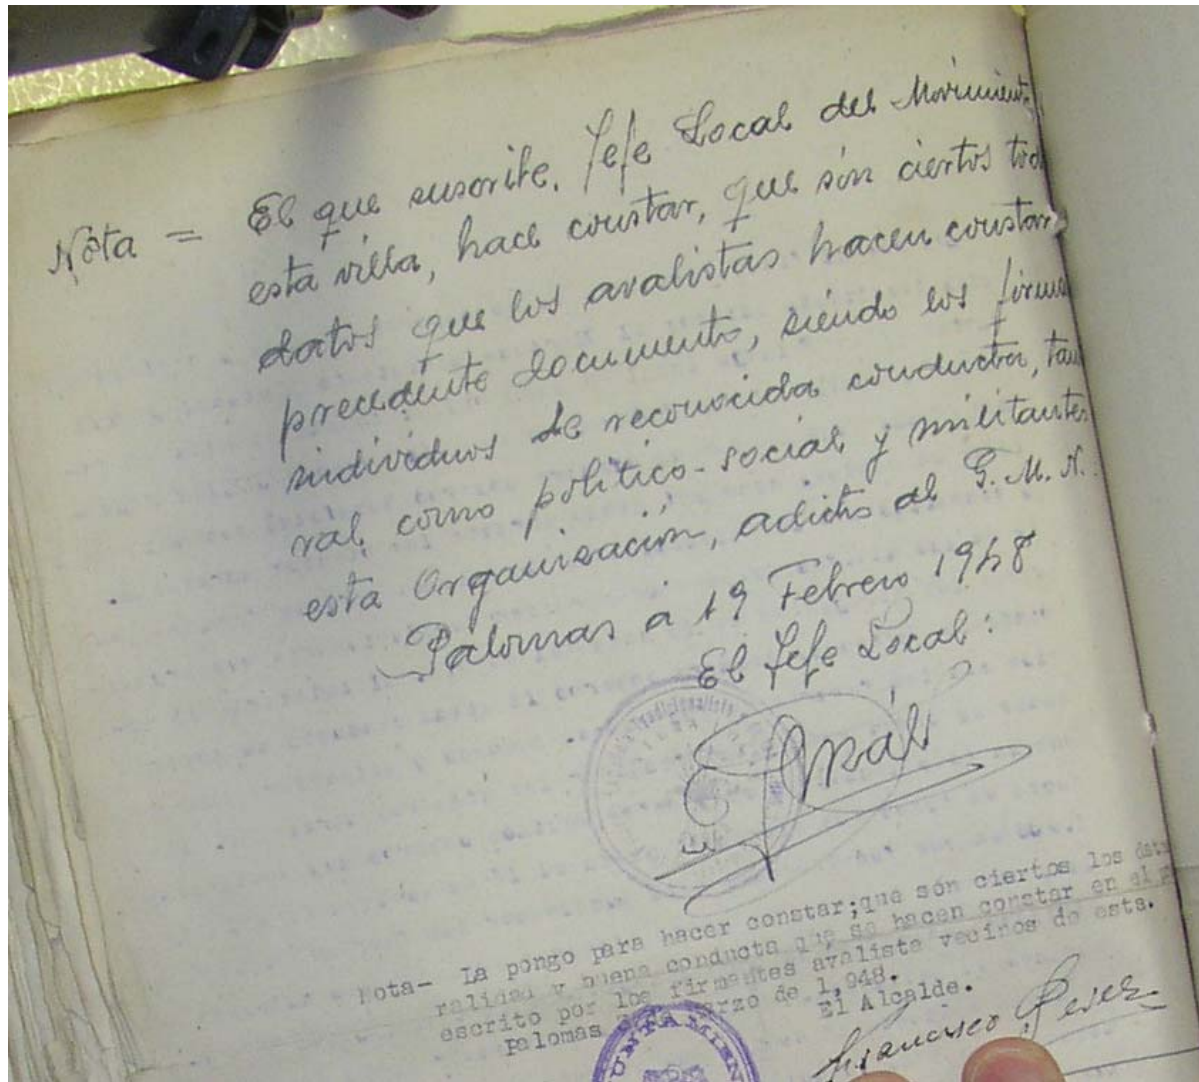 Nota = El que suscribe, Jefe Local del Movimient
esta villa, hace constar, que són ciertos tod
datos que los avalistas hacen constar
precedente documento, siendo los firma
individuos de reconocida conducta, tan
ral como politico-social y militantes
esta Organización, adictos al G. M. N.
Palomas a 19 Febrero 1948
El Jefe Local:
Tradicionalista
Nota- La pongo para hacer constar;que són ciertos los dat
ralidad y buena conducta que se hacen constar en el
escrito por los firmantes avalista vecinos de esta.
Palomas de 1,948.
El Alcalde.
Francisco Perez
UNTAMIEN